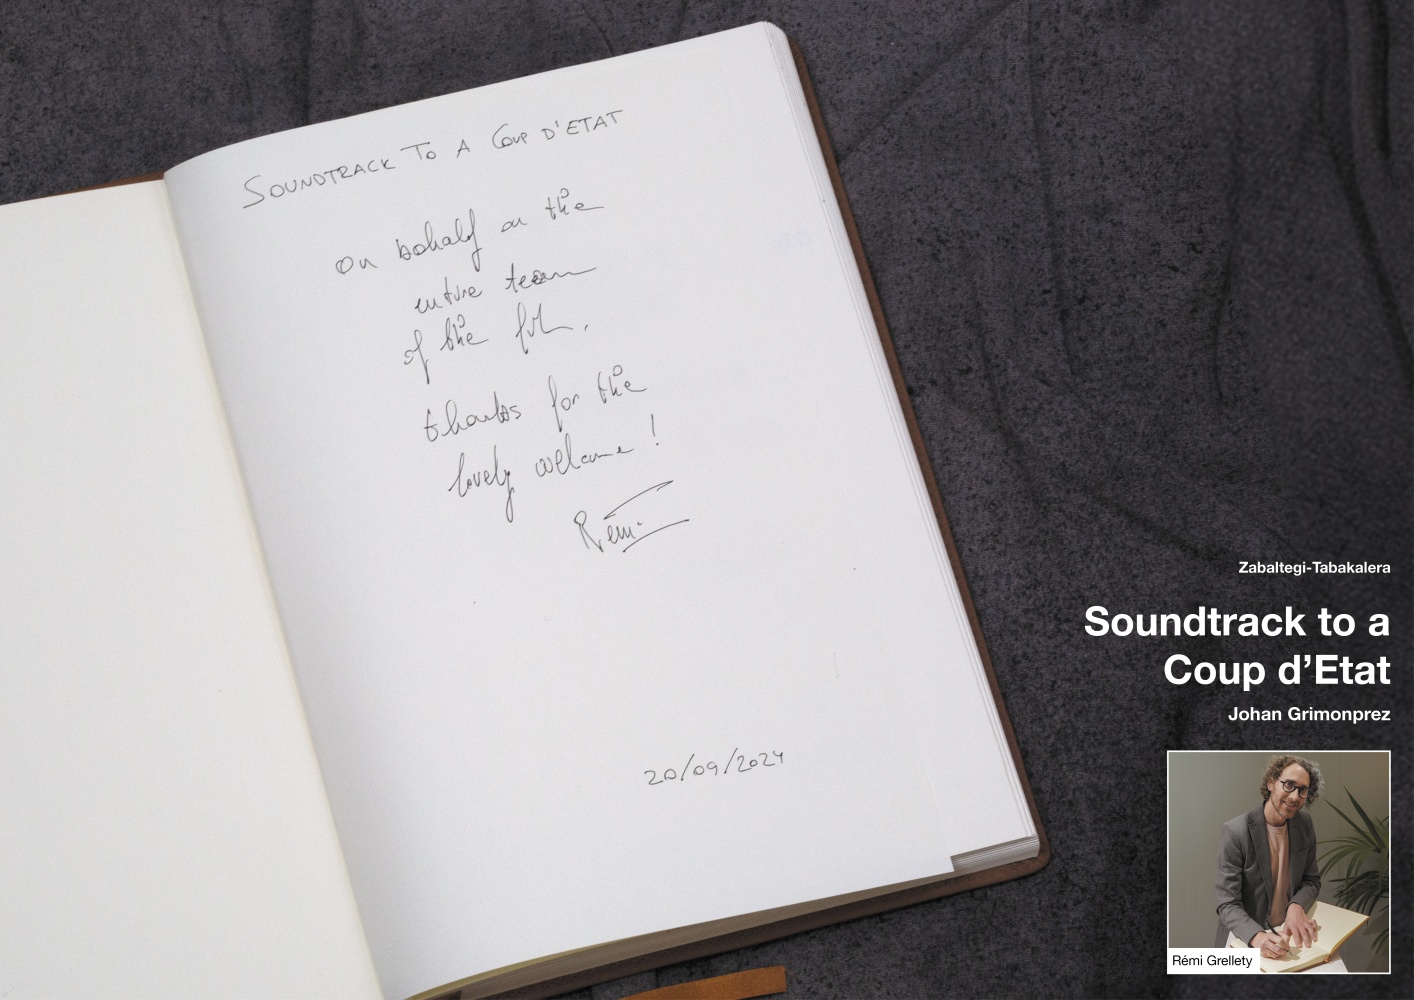 SOUNDTRACK TO A COUP D'ETAT
On behalf on the
entire team
of the film,
thanks for the
lovely welcome!
Rémi
20/09/2024
Zabaltegi-Tabakalera
Soundtrack to a
Coup d’Etat
Johan Grimonprez
Rémi Grellety